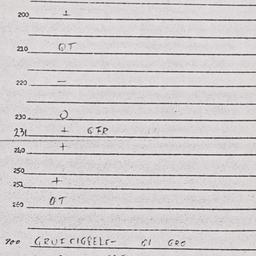 200 +
210 OT
220 -
230 O
231 + GFR
240 +
250
252 +
260 OT
700 GI GRO